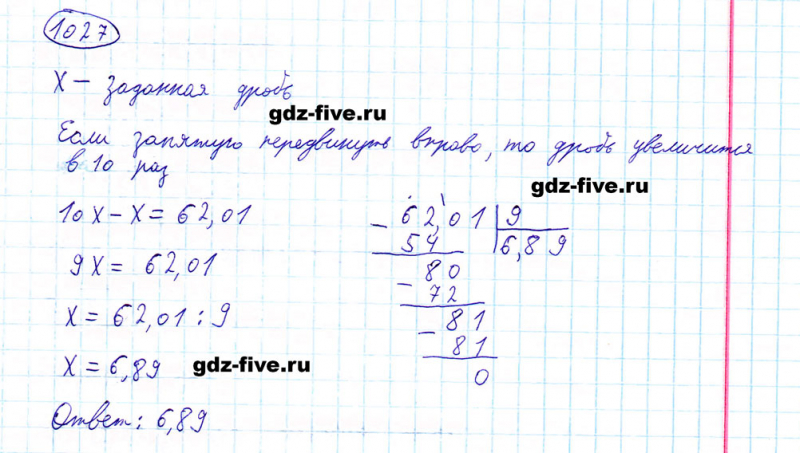 1027
X – заданная дробь
gdz-five.ru
Если запятую передвинуть вправо, то дробь увеличится
в 10 раз
gdz-five.ru
10X – X = 62,01
9X = 62,01
X = 62,01 : 9
X = 6,89
gdz-five.ru
Ответ: 6,89
– 62,01 | 9
54 | 6,89
– 80
72
– 81
81
0